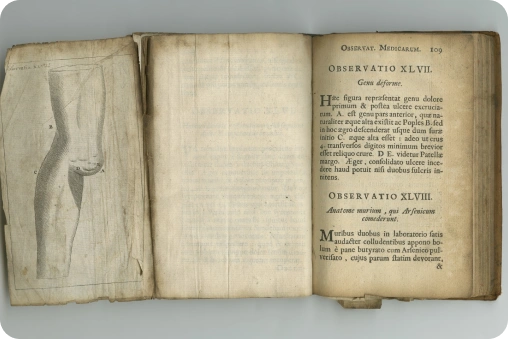 OBSERVAT. MEDICARUM. 109
OBSERVATIO XLVII.
Genu deforme.
Hæc figura repræsentat genu dolore
primum & postea ulcere excrucia-
tum. A. est genu pars anterior, quæ na-
turaliter æque alta existit ac Poples B. sed
in hoc ægro descenderat usque dum suræ
initio C. æque alta esset : adeo ut crus
4. transversos digitos minimum brevior
esset reliquo crure. D E. videtur Patellæ
margo. Æger, consolidato ulcere ince-
dere haud potuit nisi duobus fulcris in-
nitens.
OBSERVATIO XLVIII.
Anatome murium, qui Arsenicum
comederunt.
Muribus duobus in laboratorio satis
audacter colludentibus appono bo-
lum è pane butyrato cum Arsenico pul-
verisato, cujus parum statim devorant,
&
B
C
A